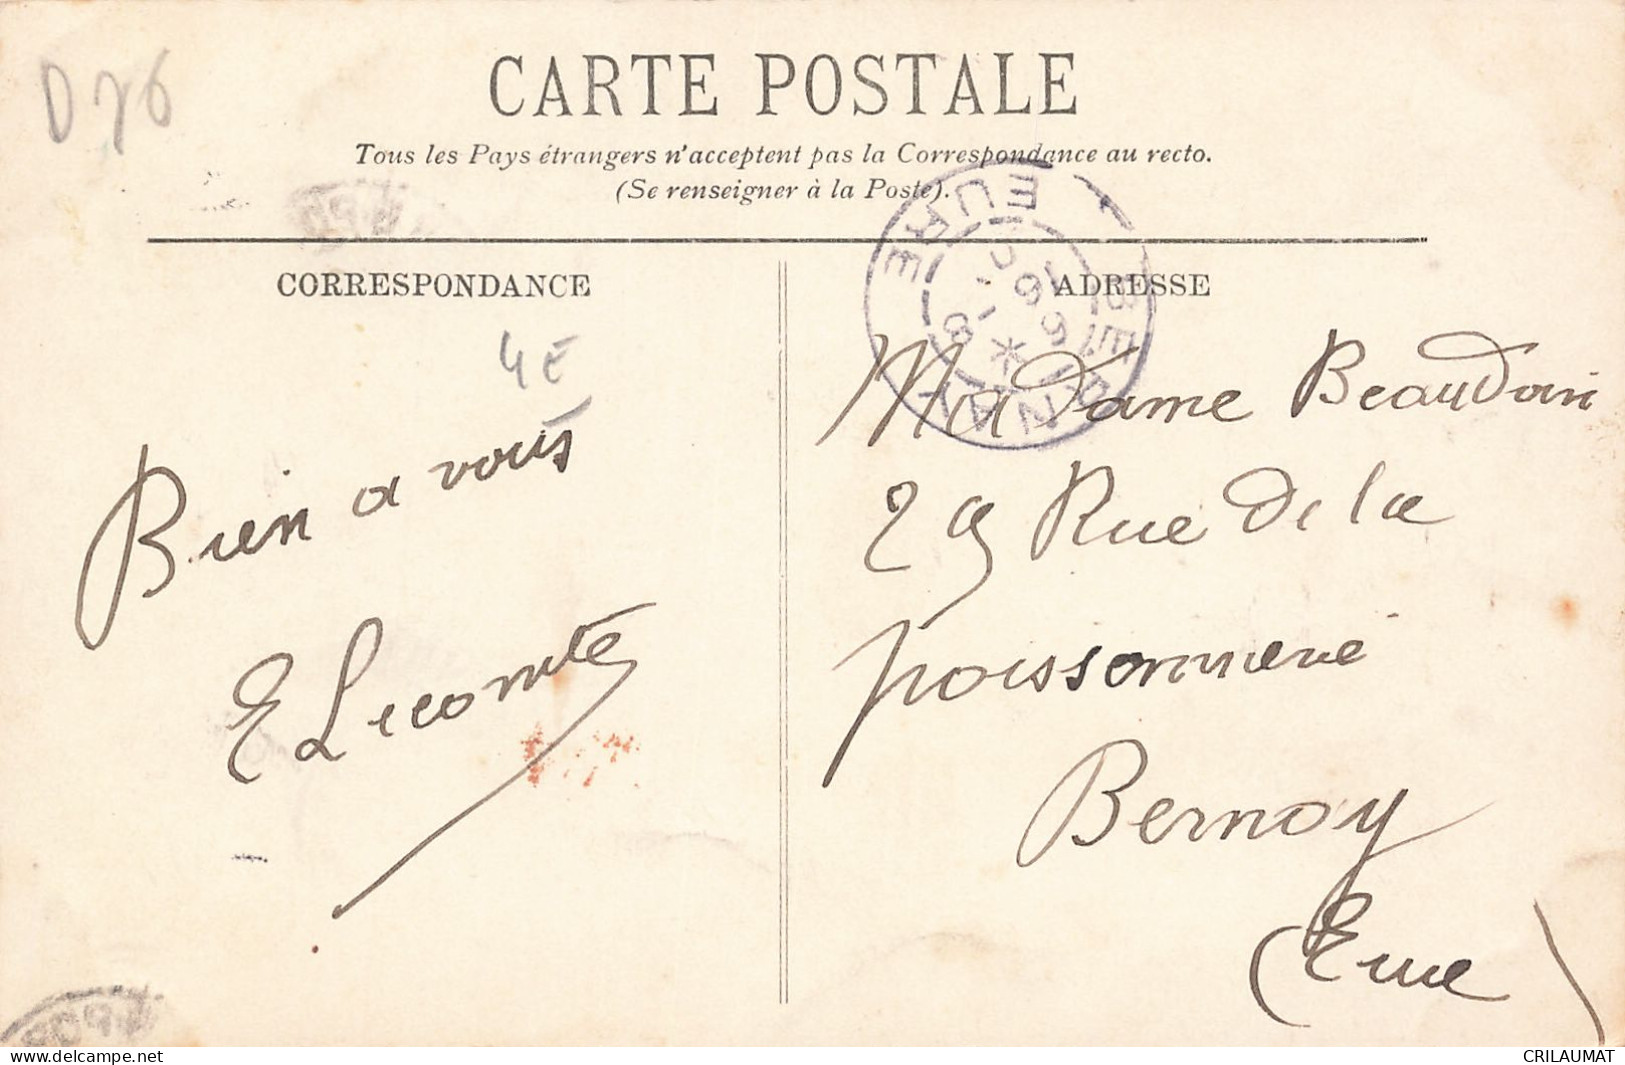 D 76
CARTE POSTALE
Tous les Pays étrangers n'acceptent pas la Correspondance au recto.
(Se renseigner à la Poste).
CORRESPONDANCE
4 E
Bien a vous
E Lecomte
ADRESSE
BERNAY
EURE
Madame Beaudoin
29 Rue de la
poissonnerie
Bernay
(Eure)
delcampe.net
CRILAUMAT